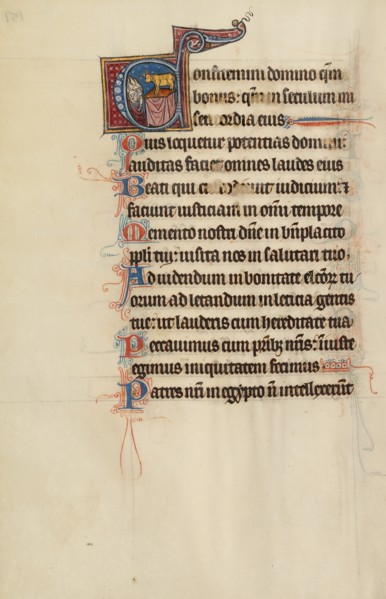 Confitemini domino qm̄
bonus: qm̄ in seculum mi
sericordia eius
Quis loquetur potentias domini:
auditas faciet omnes laudes eius
Beati qui custodiunt iudicium: ⁊
faciunt iusticiam in om̄i tempore
Memento nostri dn̄e in bn̄placito
ppl̄i tui: uisita nos in salutari tuo.
Ad uidendum in bonitate elc̄oꝝ tu
orum ad letandum in leticia gentis
tue: ut lauderis cum hereditate tua
Peccauimus cum prīb; nr̄is: īiuste
egimus iniquitatem fecimus
Patres nr̄i in egypto n̄ intellexerūt